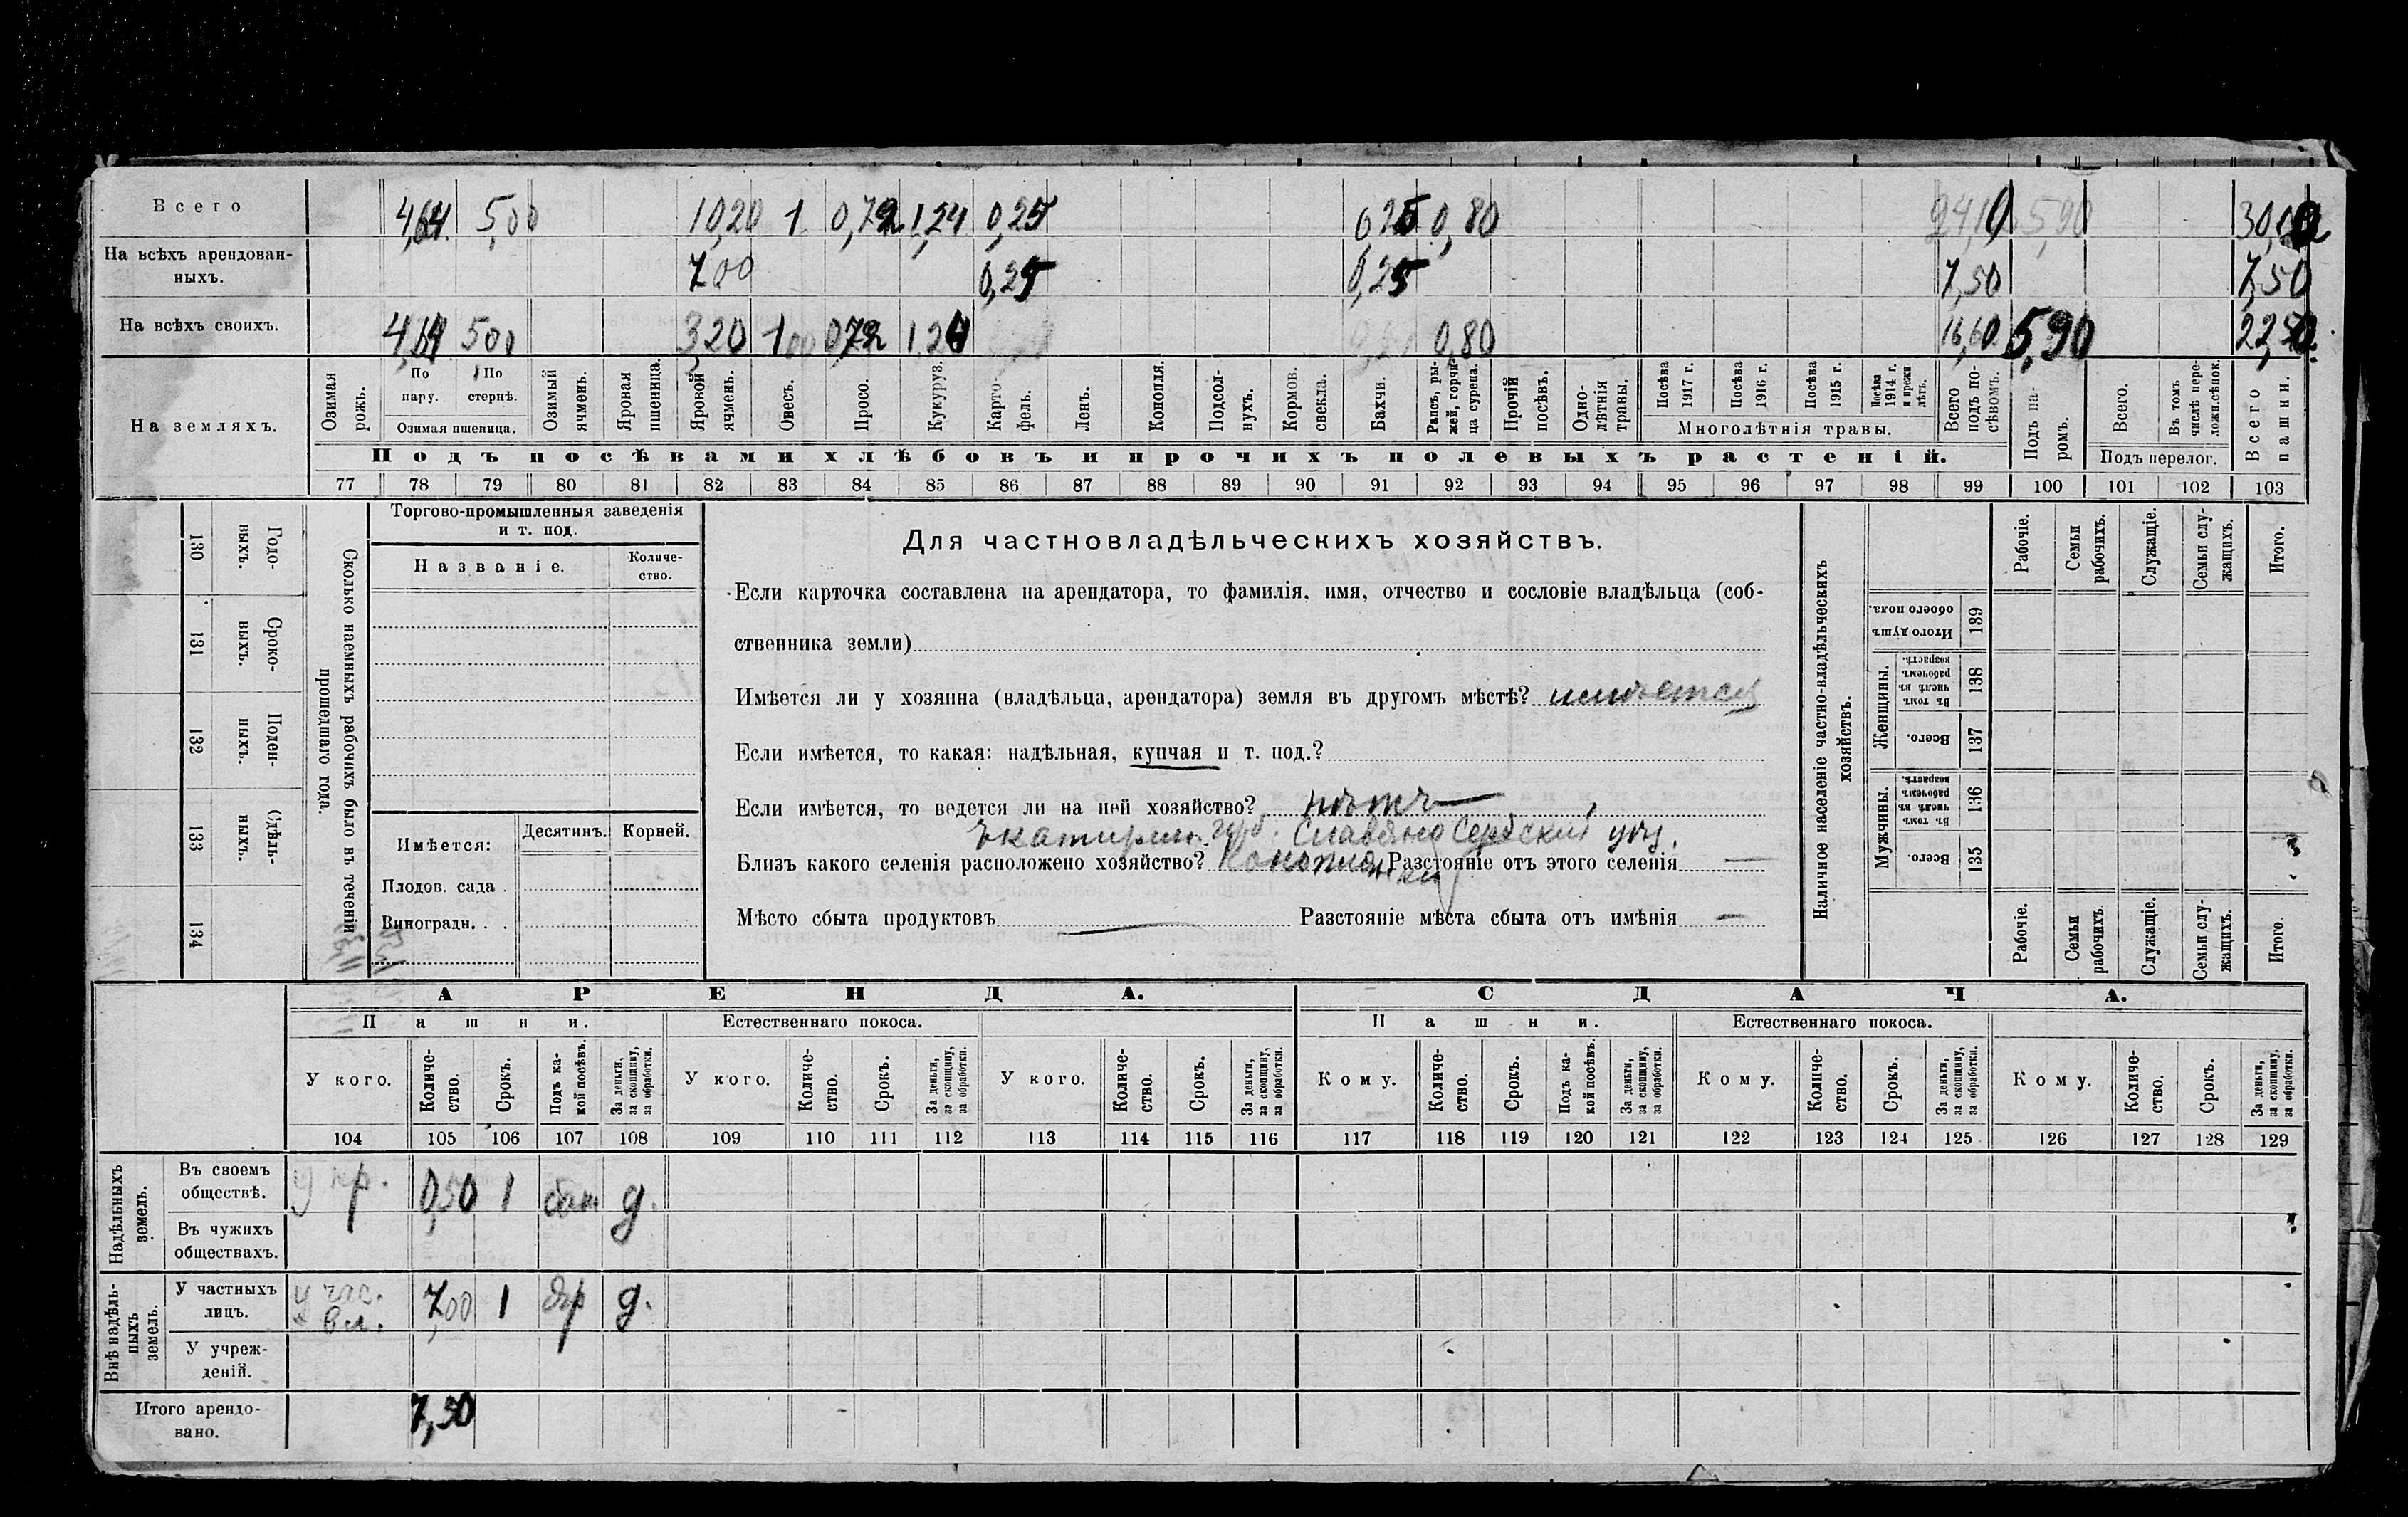 Всего 4,64 5,00 10,20 1 0,72 1,24 0,25 0,25 0,80 24,10 5,90
На всѣхъ арендован-
ныхъ. 7 00 0,25 0,25 7,50 7,50
На всѣхъ своихъ. 4,64 5 00 3,20 1 00 0,72 1,24 0,80 16,60 5,90 22,50
На земляхъ.
Озимая рожь.
По пару.
По стернѣ.
Озимая пшеница.
Озимый ячмень.
Яровая пшеница.
Яровой ячмень.
Овесъ.
Просо.
Кукуруз.
Карто-
фель.
Ленъ.
Конопля.
Подсол-
нухъ.
Кормов. свекла.
Бахчи.
Рапсъ, ры-
жей, горчи-
ца сурепа.
Прочій посѣвъ.
Одно-
лѣтнія травы.
Посѣва 1917 г.
Посѣва 1916 г.
Посѣва 1915 г.
Посѣва 1914 г. и прежн лѣтъ.
Многолѣтнія травы.
Всего подъ по-
сѣвомъ.
Подъ па-
ромъ.
Всего.
Въ томъ числѣ пере-
ложн.сѣнок.
Подъ перелог.
Всего пашни.
Подъ посѣвами хлѣбовъ и прочихъ полевыхъ растеній.
77 78 79 80 81 82 83 84 85 86 87 88 89 90 91 92 93 94 95 96 97 98 99 100 101 102 103
Сколько наемныхъ рабочихъ было въ теченіи
прошедшаго года.
Годо-
выхъ. 130
Сроко-
выхъ. 131
Поден-
ныхъ. 132
Сдѣль-
ныхъ. 133
134
Торгово-промышленныя заведенія
и т. под.
Названіе. Количе-
ство.
Имѣется: Десятинъ. Корней.
Плодов. сада .
Виноградн. . .
Для частновладѣльческихъ хозяйствъ.
Если карточка составлена на арендатора, то фамилія, имя, отчество и сословіе владѣльца (соб-
ственника земли)
Имѣется ли у хозяина (владѣльца, арендатора) земля въ другомъ мѣстѣ? имѣется
Если имѣется, то какая: надѣльная, купчая и т. под.?
Если имѣется, то ведется ли на ней хозяйство? нѣтъ
Екатерин. губ. Славяносербскій уѣз.
Близъ какого селенія расположено хозяйство? Разстояніе отъ этого селенія —
Мѣсто сбыта продуктовъ — Разстояніе мѣста сбыта отъ имѣнія —
Наличное населеніе частно-владѣльческихъ
хозяйствъ.
Рабочіе.
Семьи рабочихъ.
Служащіе.
Семьи слу-
жащихъ.
Итого.
Итого душъ обоего пола. 139
Женщины.
Въ томъ числѣ въ рабочемъ возрастѣ. 138
Всего. 137
Мужчины.
Въ томъ числѣ въ рабочемъ возрастѣ. 136
Всего. 135
Рабочіе.
Семьи рабочихъ.
Служащіе.
Семьи слу-
жащихъ.
Итого
АРЕНДА. СДАЧА.
Пашни. Естественнаго покоса. Пашни. Естественнаго покоса.
У кого. Количе-
ство. Срокъ. Подъ ка-
кой посѣвъ. За деньги, за скопщину, за обработки.
У кого. Количе-
ство. Срокъ. За деньги, за скопщину, за обработки.
У кого. Количе-
ство. Срокъ. За деньги, за скопщину, за обработки.
Кому. Количе-
ство. Срокъ. Подъ ка-
кой посѣвъ. За деньги, за скопщину, за обработки.
Кому. Количе-
ство. Срокъ. За деньги, за скопщину, за обработки.
Кому. Количе-
ство. Срокъ. За деньги, за скопщину, за обработки.
104 105 106 107 108 109 110 111 112 113 114 115 116 117 118 119 120 121 122 123 124 125 126 127 128 129
Надѣльныхъ земель.
Въ своемъ
обществѣ. у кр. 0,50 1 д.
Въ чужихъ
обществахъ.
Внѣ надѣль-
ныхъ земель.
У частныхъ
лицъ. у час. вл. 7,00 1 яр д.
У учреж-
деній.
Итого арендо-
вано. 7,50